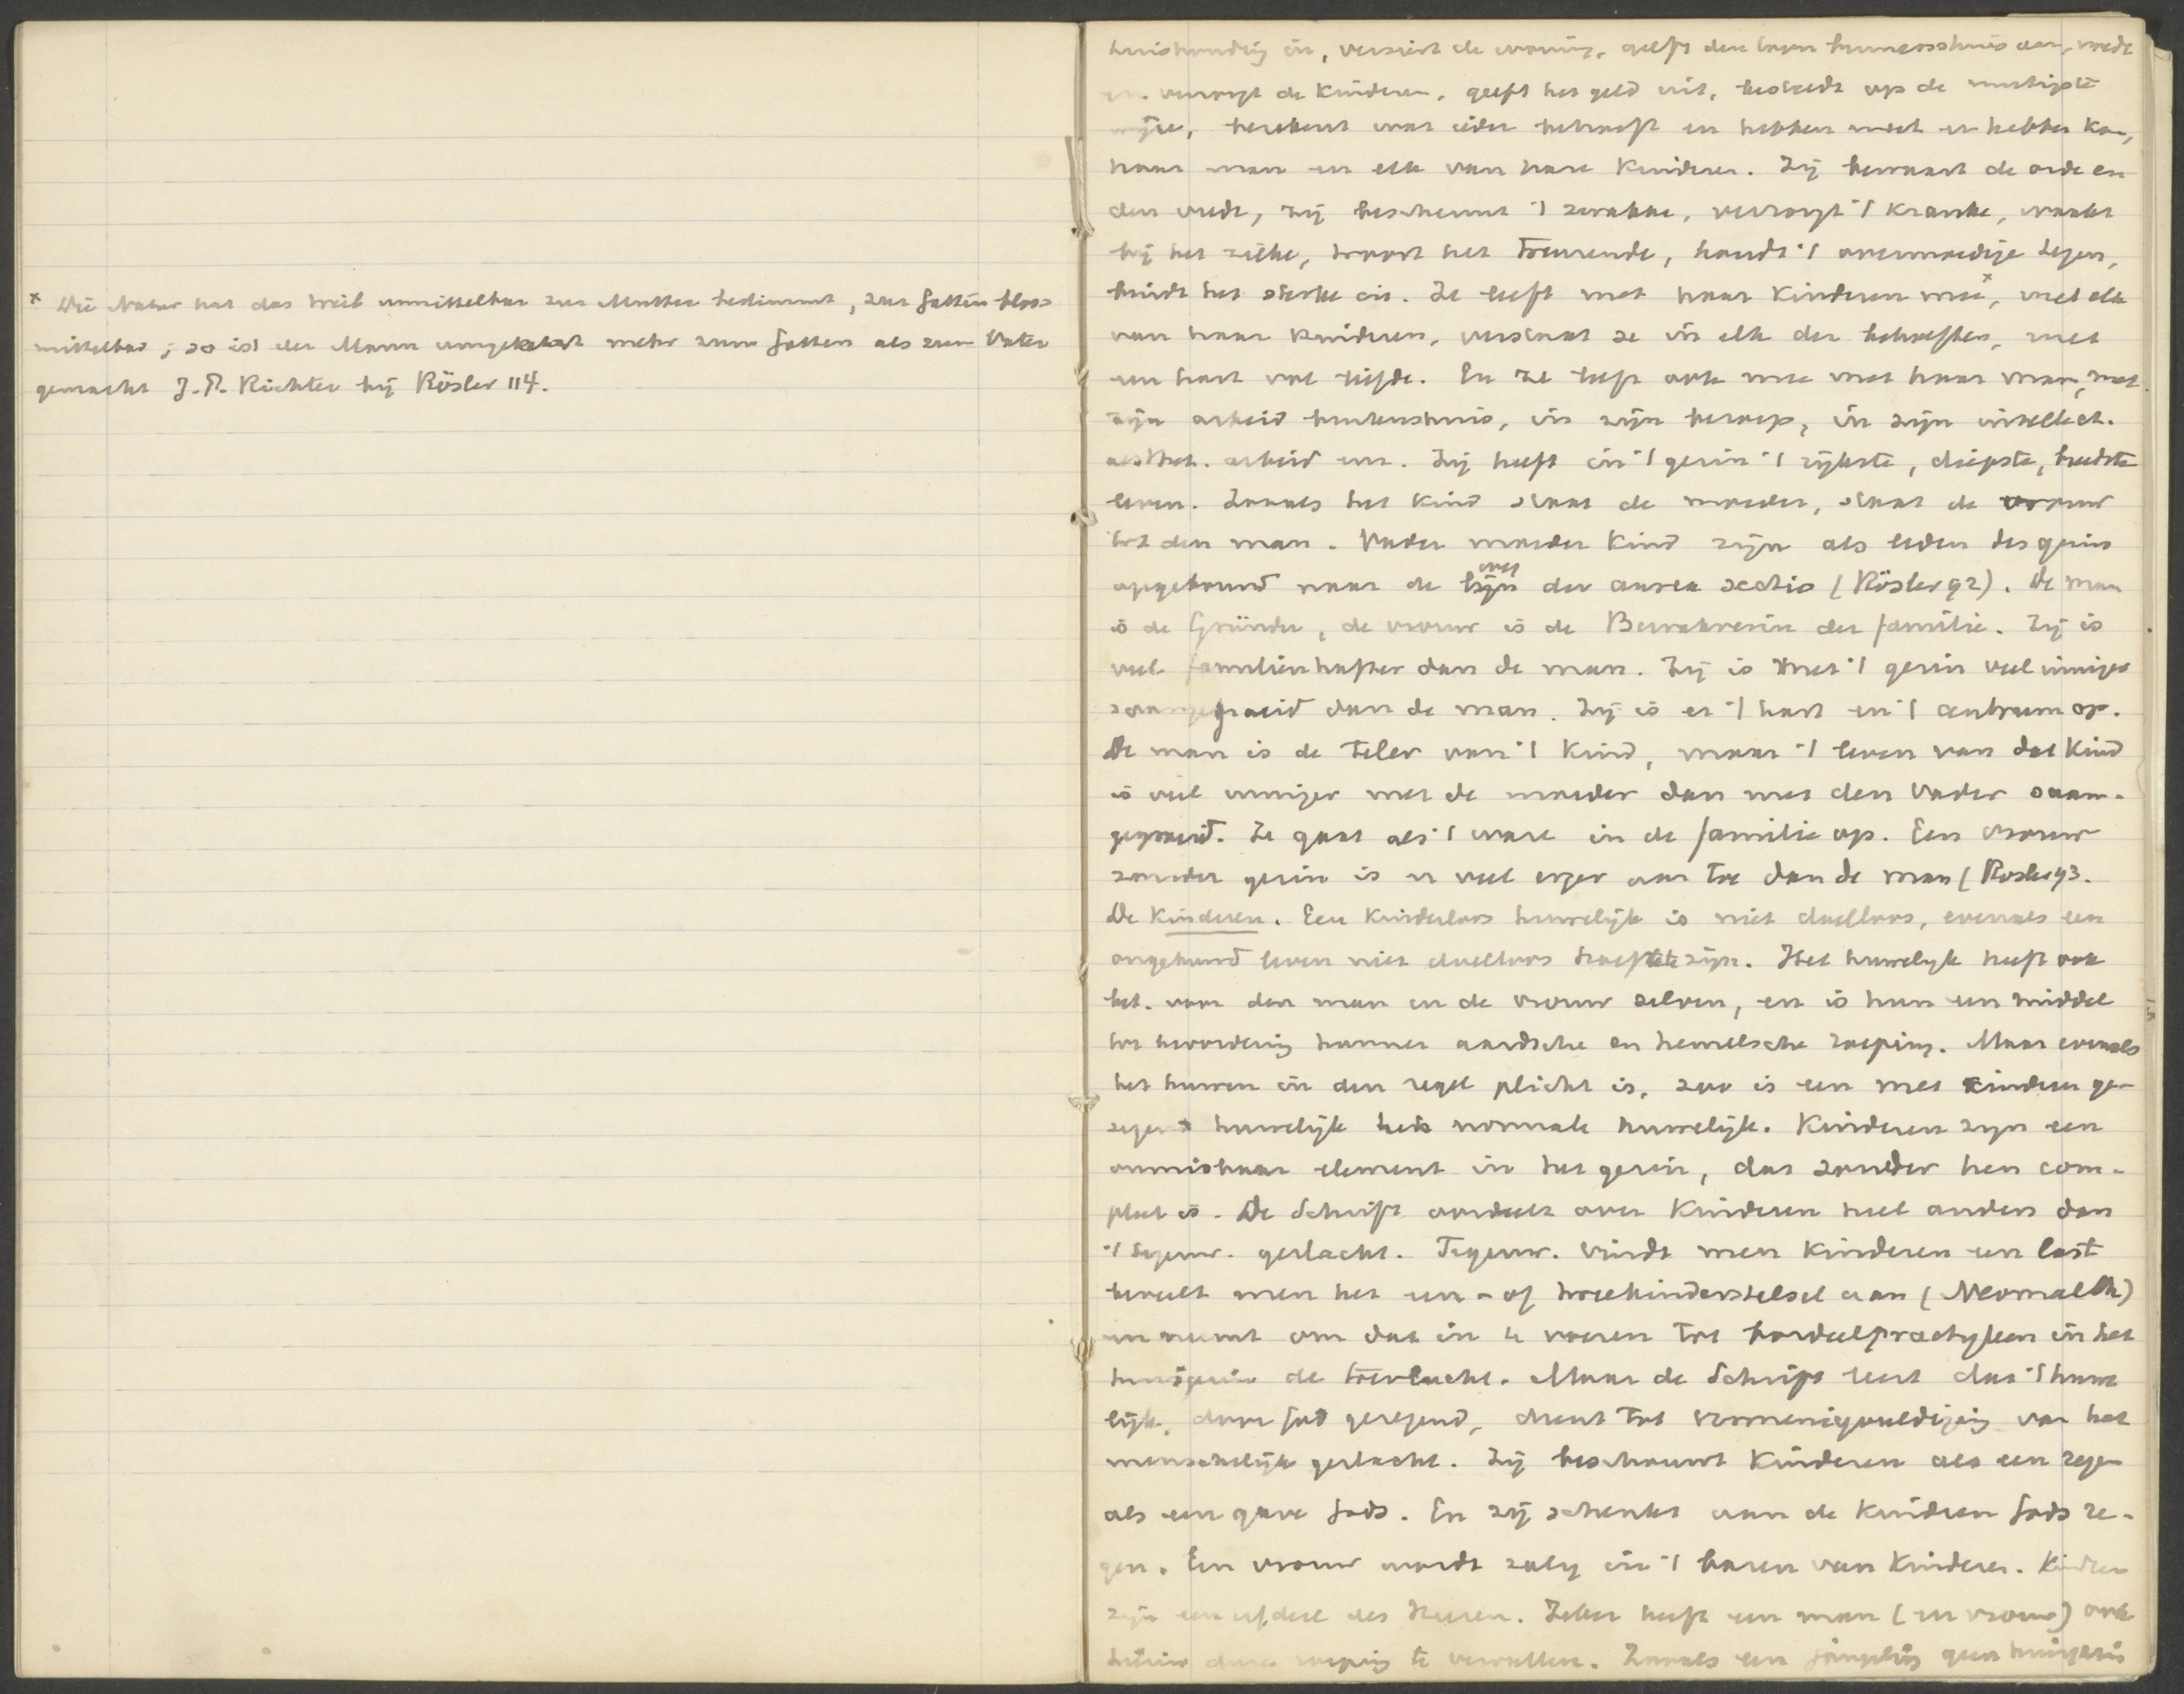 x Die Natur hat das Weib unmittelbar zur Mutter bestimmt, zur Gattin bloss
mittelbar; so ist der Mann umgekehrt mehr zum Gatten als zum Vater
gemacht J. P. Richter bij Rösler 114.
huishouding in, versiert de woning, geeft den toon binnenshuis aan, voedt
en verzorgt de kinderen, geeft het geld uit, besteedt op de nuttigste
wijze, berekent wat ieder behoeft en hebben moet en hebben kan,
haar man en elk van hare kinderen. Zij bewaart de orde en
den vrede, zij beschermt 't zwakke, verzorgt 't kranke, waakt
bij het zieke, troost het treurende, houdt 't overmoedige tegen,
bindt het sterke in. Ze leeft met haar kinderen mee x, met elk
van haar kinderen, verstaat ze in elk der behoeften, met
een hart vol liefde. En ze leeft ook mee met haar man, met
zijn arbeid buitenshuis, in zijn beroep, in zijn intellect.
aesthet. arbeid enz. Zij heeft in 't gezin 't rijkste, diepste, breedste
leven. Zooals het kind staat de moeder, staat de vrouw
tot den man. Vader moeder kind zijn als leden des gezins
opgebouwd naar de wet der aurea sectio (Rösler 92). De man
is de Gründer, de vrouw is de Bewahrerin der familie. Zij is
veel familienhafter dan de man. Zij is met 't gezin veel inniger
saamgegroeid dan de man. Zij is er 't hart en 't centrum op.
De man is de Teler van 't kind, maar 't leven van dat kind
is veel inniger met de moeder dan met den vader saam-
gegroeid. Ze gaat als 't ware in de familie op. Een vrouw
zonder gezin is er veel erger aan toe dan de man (Rosler 93.
De kinderen. Een kinderloos huwelijk is niet doelloos, evenals een
ongehuwd leven niet doelloos hoeft te zijn. Het huwelijk heeft ook
bet. voor den man en de vrouw zelven, en is hun een middel
tot bevordering hunner aardsche en hemelsche roeping. Maar evenals
het huwen in den regel plicht is, zoo is een met kinderen ge-
zegend huwelijk het normale huwelijk. Kinderen zijn een
onmisbaar element in het gezin, dat zonder hen com-
pleet is. De Schrift oordeelt over kinderen heel anders dan
't tegenw. geslacht. Tegenw. vindt men kinderen een last
beveelt men het een- of tweekinderstelsel aan (Neomalth)
en neemt om dat in te voeren tot bordeelpractijken in het
huisgezin de toevlucht. Maar de Schrift leert dat 't huwe
lijk, door God gezegend, dient tot vermenigvuldiging van het
menschelijk geslacht. Zij beschouwt kinderen als een zegen
als een gave Gods. En zij schenkt aan de kinderen Gods ze-
gen. Een vrouw wordt zalig in 't baren van kinderen. Kinderen
zijn een erfdeel des Heeren. Zeker heeft een man (en vrouw) ook
hierin roeping te vervullen. Zooals een jongeling geen